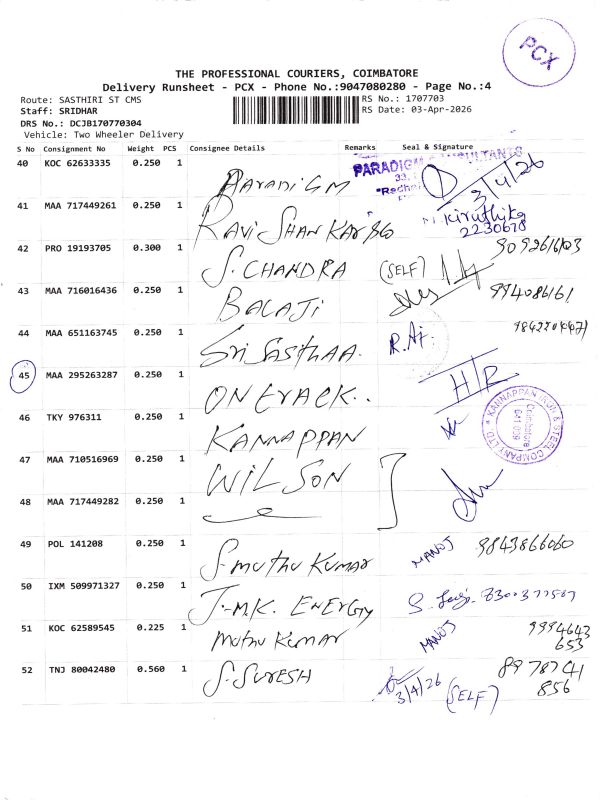 PCX
THE PROFESSIONAL COURIERS, COIMBATORE
Delivery Runsheet - PCX - Phone No.:9047080280 - Page No.:4
Route: SASTHIRI ST CMS RS No.: 1707703
Staff: SRIDHAR RS Date: 03-Apr-2026
DRS No.: DCJB170770304
Vehicle: Two Wheeler Delivery
S No Consignment No Weight PCS Consignee Details Remarks Seal & Signature
40 KOC 62633335 0.250 1 PARADIGM 3/4/26
41 MAA 717449261 0.250 1 RAVI SHANKAR Kiruthika
2230678
42 PRO 19193705 0.300 1 S. CHANDRA (SELF)
43 MAA 716016436 0.250 1 BALAJI 994086161
44 MAA 651163745 0.250 1 Sri SASTHAA
45 MAA 295263287 0.250 1 ON TRACK.. H/R
46 TKY 976311 0.250 1 KANNAPPAN KANNAPPAN IRON & STEEL COMPANY (P) LTD. Coimbatore 641 009
47 MAA 710516969 0.250 1 WILSON
48 MAA 717449282 0.250 1
49 POL 141208 0.250 1 S. Muthu Kumar MANOJ 9843866060
50 IXM 509971327 0.250 1 J.M.K. ENERGY
51 KOC 62589545 0.225 1 Muthu Kumar MANOJ 9994643
653
52 TNJ 80042480 0.560 1 S. SURESH 3/4/26 (SELF) 8978741
856